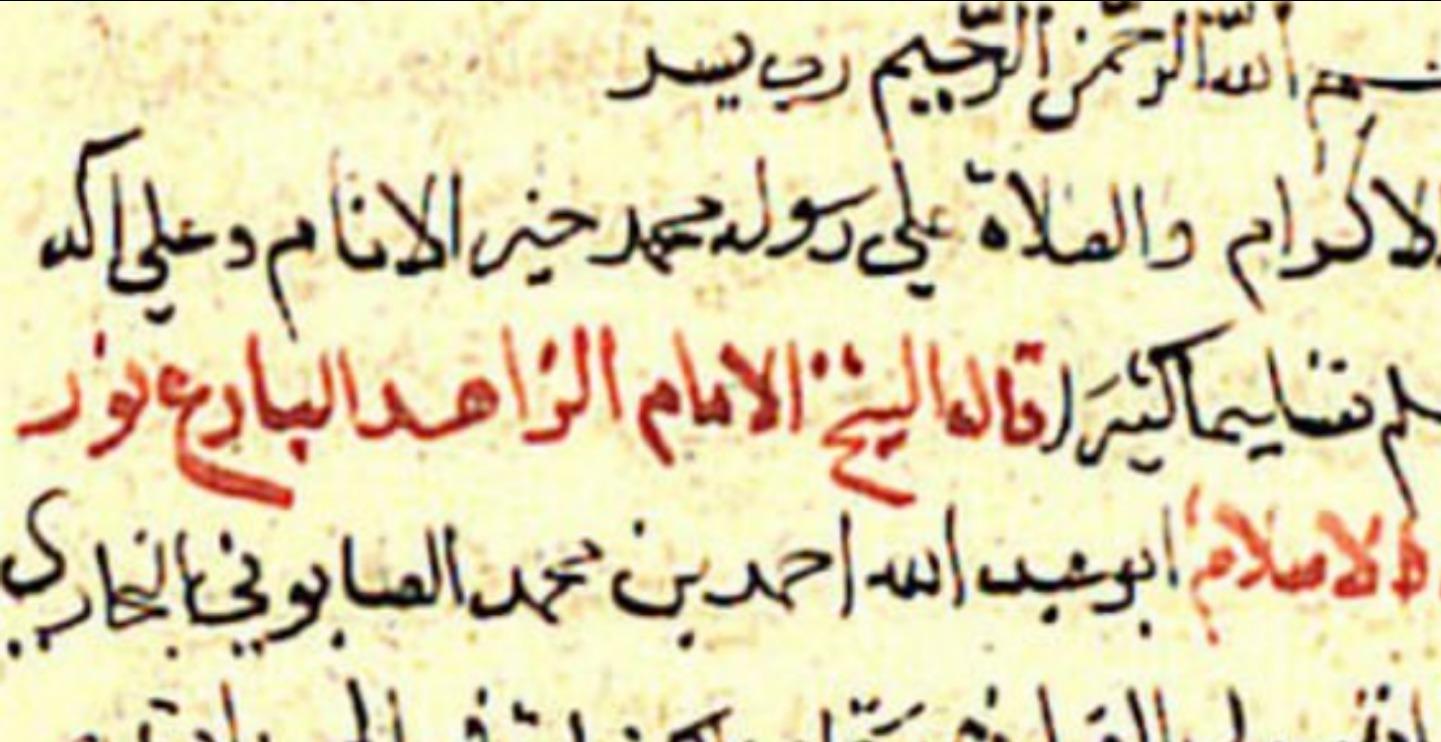 بسم الله الرحمن الرحيم رب يسر
الاكرام والصلاة علي رسوله محمد خير الانام وعلي اله
سلم تسليما كثيرا قال الشيخ الامام الزاهد البارع نور
الاسلام ابو عبد الله احمد بن محمد الصابوني البخاري